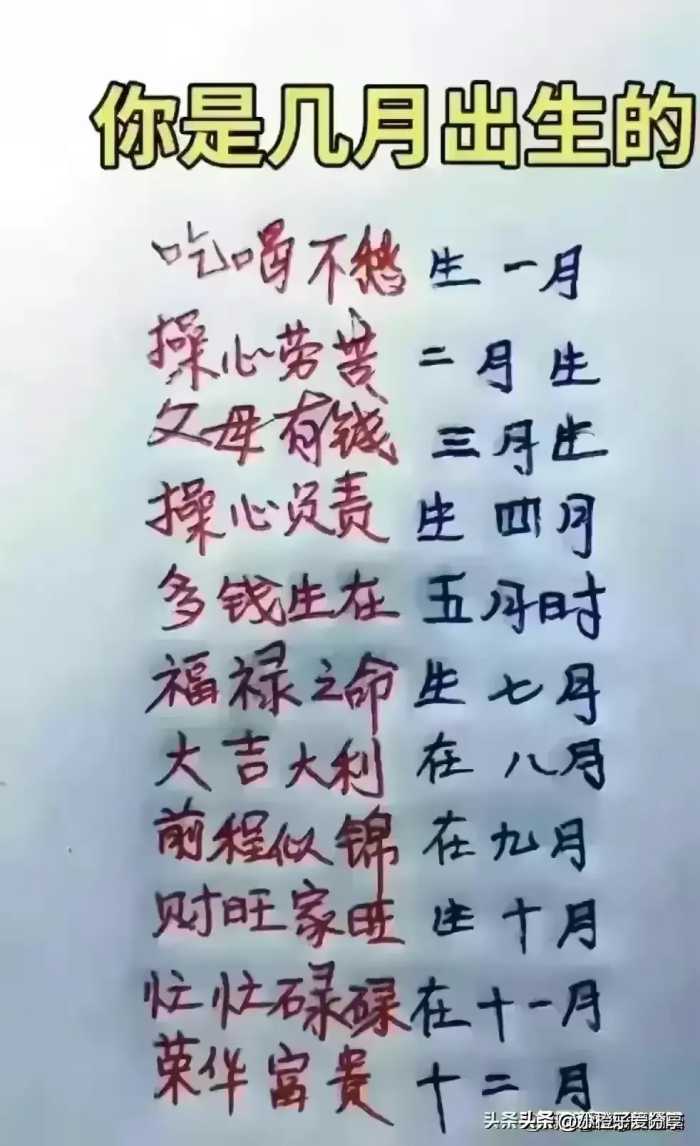 你是几月出生的
吃喝不愁 生一月
操心劳苦 二月生
父母有钱 三月生
操心负责 生四月
多钱生在 五月时
福禄之命 生七月
大吉大利 在八月
前程似锦 在九月
财旺家旺 生十月
忙忙碌碌 在十一月
荣华富贵 十二月
头条 头条 @小橙子爱分享